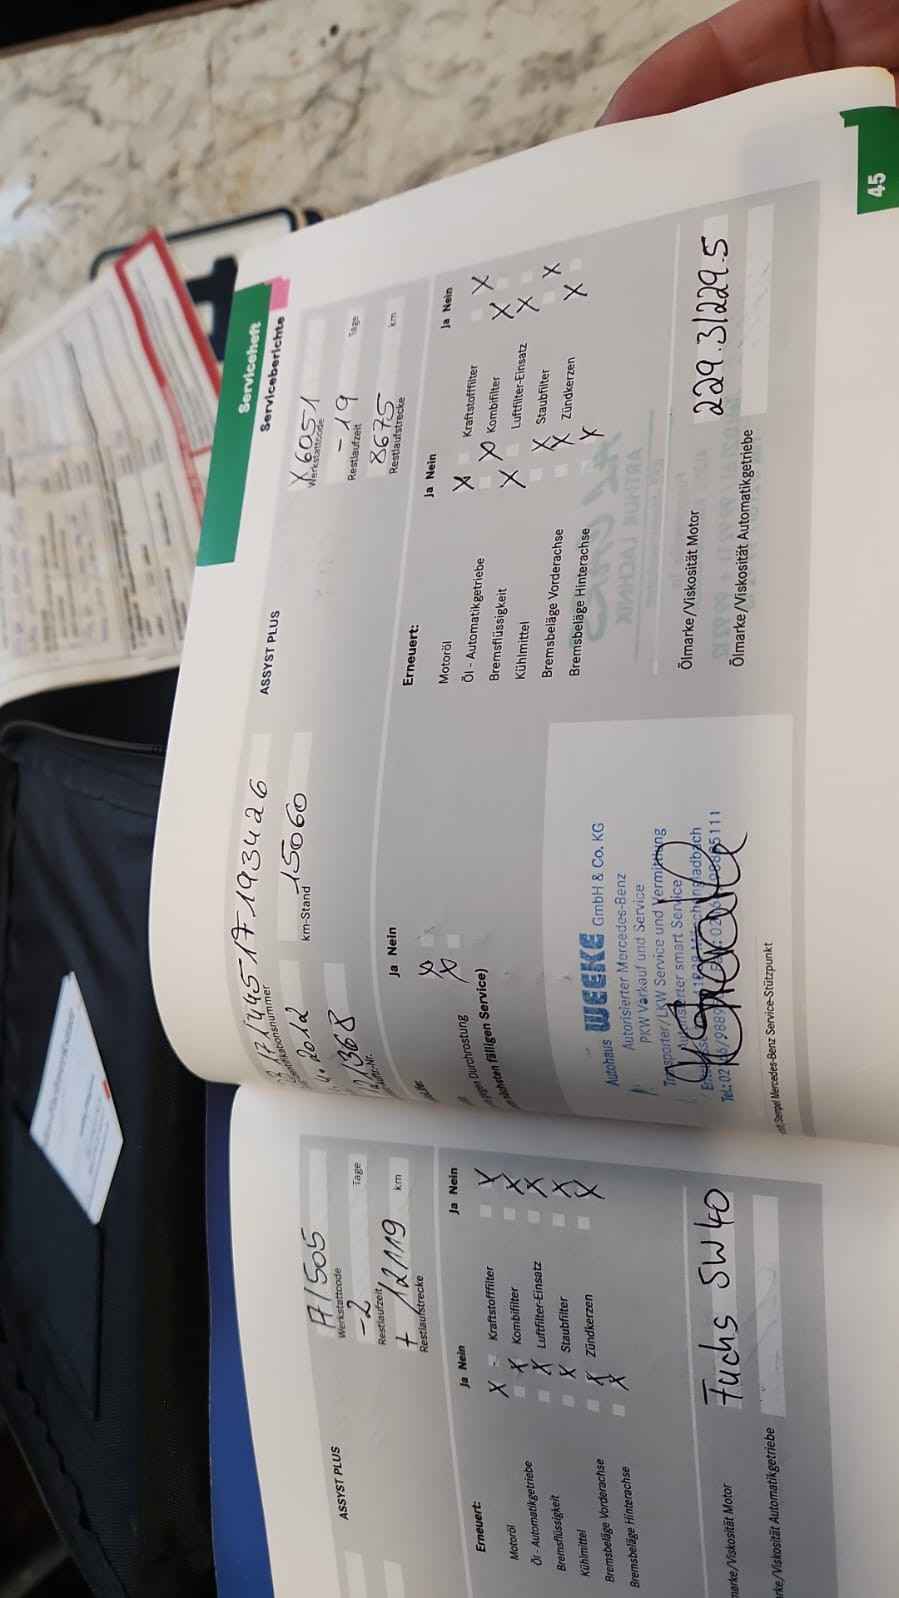 ASSYST PLUS
A1505
Werkstattcode
-2
Tage
Restlaufzeit
+ 12119
km
Restlaufstrecke
Erneuert:
Ja Nein
Ja Nein
Motoröl
X
Kraftstofffilter
X
Öl - Automatikgetriebe
X
Kombifilter
X
Bremsflüssigkeit
X
Luftfilter-Einsatz
X
Kühlmittel
X
Staubfilter
X
Bremsbeläge Vorderachse
X
Zündkerzen
X
Bremsbeläge Hinterachse
X
marke/Viskosität Motor
Fuchs 5W40
marke/Viskosität Automatikgetriebe
Serviceheft
Serviceberichte
171445 1 J 193426
2012
km-Stand
15060
Ja Nein
X
X
gegen Durchrostung
nächsten fälligen Service)
Autohaus WEEKE GmbH & Co. KG
Autorisierter Mercedes-Benz
PKW Verkauf und Service
Transporter/LKW Service und Vermittlung
Autorisierter smart Service
Stempel Mercedes-Benz Service-Stützpunkt
ASSYST PLUS
X6051
Werkstattcode
-19
Tage
Restlaufzeit
8675
km
Restlaufstrecke
Erneuert:
Ja Nein
Ja Nein
Motoröl
X
Kraftstofffilter
X
Öl - Automatikgetriebe
X
Kombifilter
X
Bremsflüssigkeit
X
Luftfilter-Einsatz
X
Kühlmittel
X
Staubfilter
X
Bremsbeläge Vorderachse
X
Zündkerzen
X
Bremsbeläge Hinterachse
X
Ölmarke/Viskosität Motor
229.3/229.5
Ölmarke/Viskosität Automatikgetriebe
45